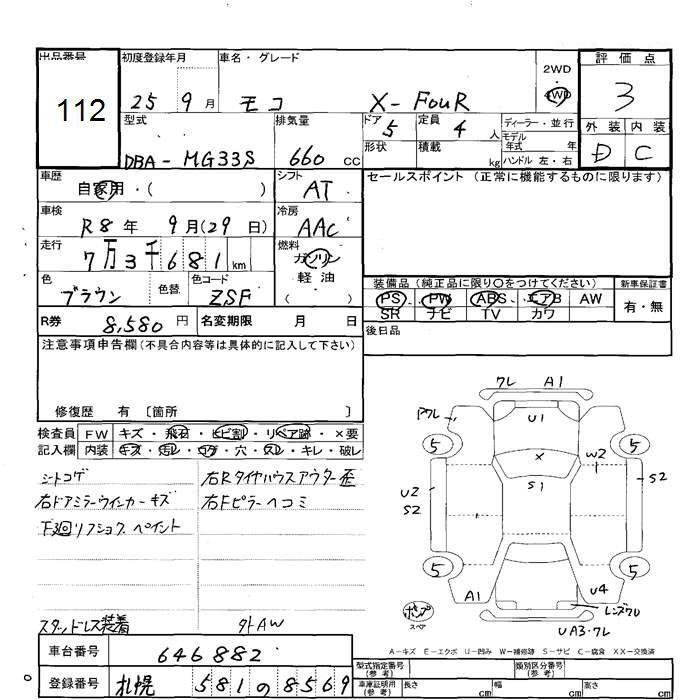 出品番号 112
初度登録年月 25 9月
車名・グレード モコ X-FouR
2WD 4WD
評価点 3
外装 D 内装 C
型式 DBA-MG33S
排気量 660 cc
ドア 5 形状
定員 4 人
積載 kg
ディーラー・並行
モデル年式 年
ハンドル 左・右
車歴 自家用・( )
シフト AT
セールスポイント (正常に機能するものに限ります)
車検 R8年 9月(29日)
冷房 AAC
走行 7万3千681 km
燃料 ガソリン 軽油 ( )
色 ブラウン 色替
色コード ZSF
装備品(純正品に限り○をつけてください)
PS PW ABS エアB AW
SR ナビ TV カワ
新車保証書 有・無
R券 8,580 円
名変期限 月 日
後日品
注意事項申告欄(不具合内容等は具体的に記入して下さい)
修復歴 有 〔箇所 〕
検査員記入欄
FW キズ・飛石・ヒビ割・リペア跡・×要
内装 キズ・汚レ・コゲ・穴・スレ・キレ・破レ
シートコゲ
右ドアミラーウインカーキズ
下廻リフショク、ペイント
右Rタイヤハウスアウター歪
右Fピラーヘコミ
スタッドレス装着
外AW
クレ A1
U1
ワレ
5 5
X
W2
S1
U2
S2
S2
5 5
A1
U4
ポンプ
スペア
レンズワレ
UA3・ワレ
A－キズ E－エクボ U－凹み W－補修跡 S－サビ C－腐食 XX－交換済
車台番号 646882
登録番号 札幌 581 の 8569
型式指定番号(参考)
類別区分番号(参考)
車庫証明用(参考) 長さ cm 幅 cm 高さ cm